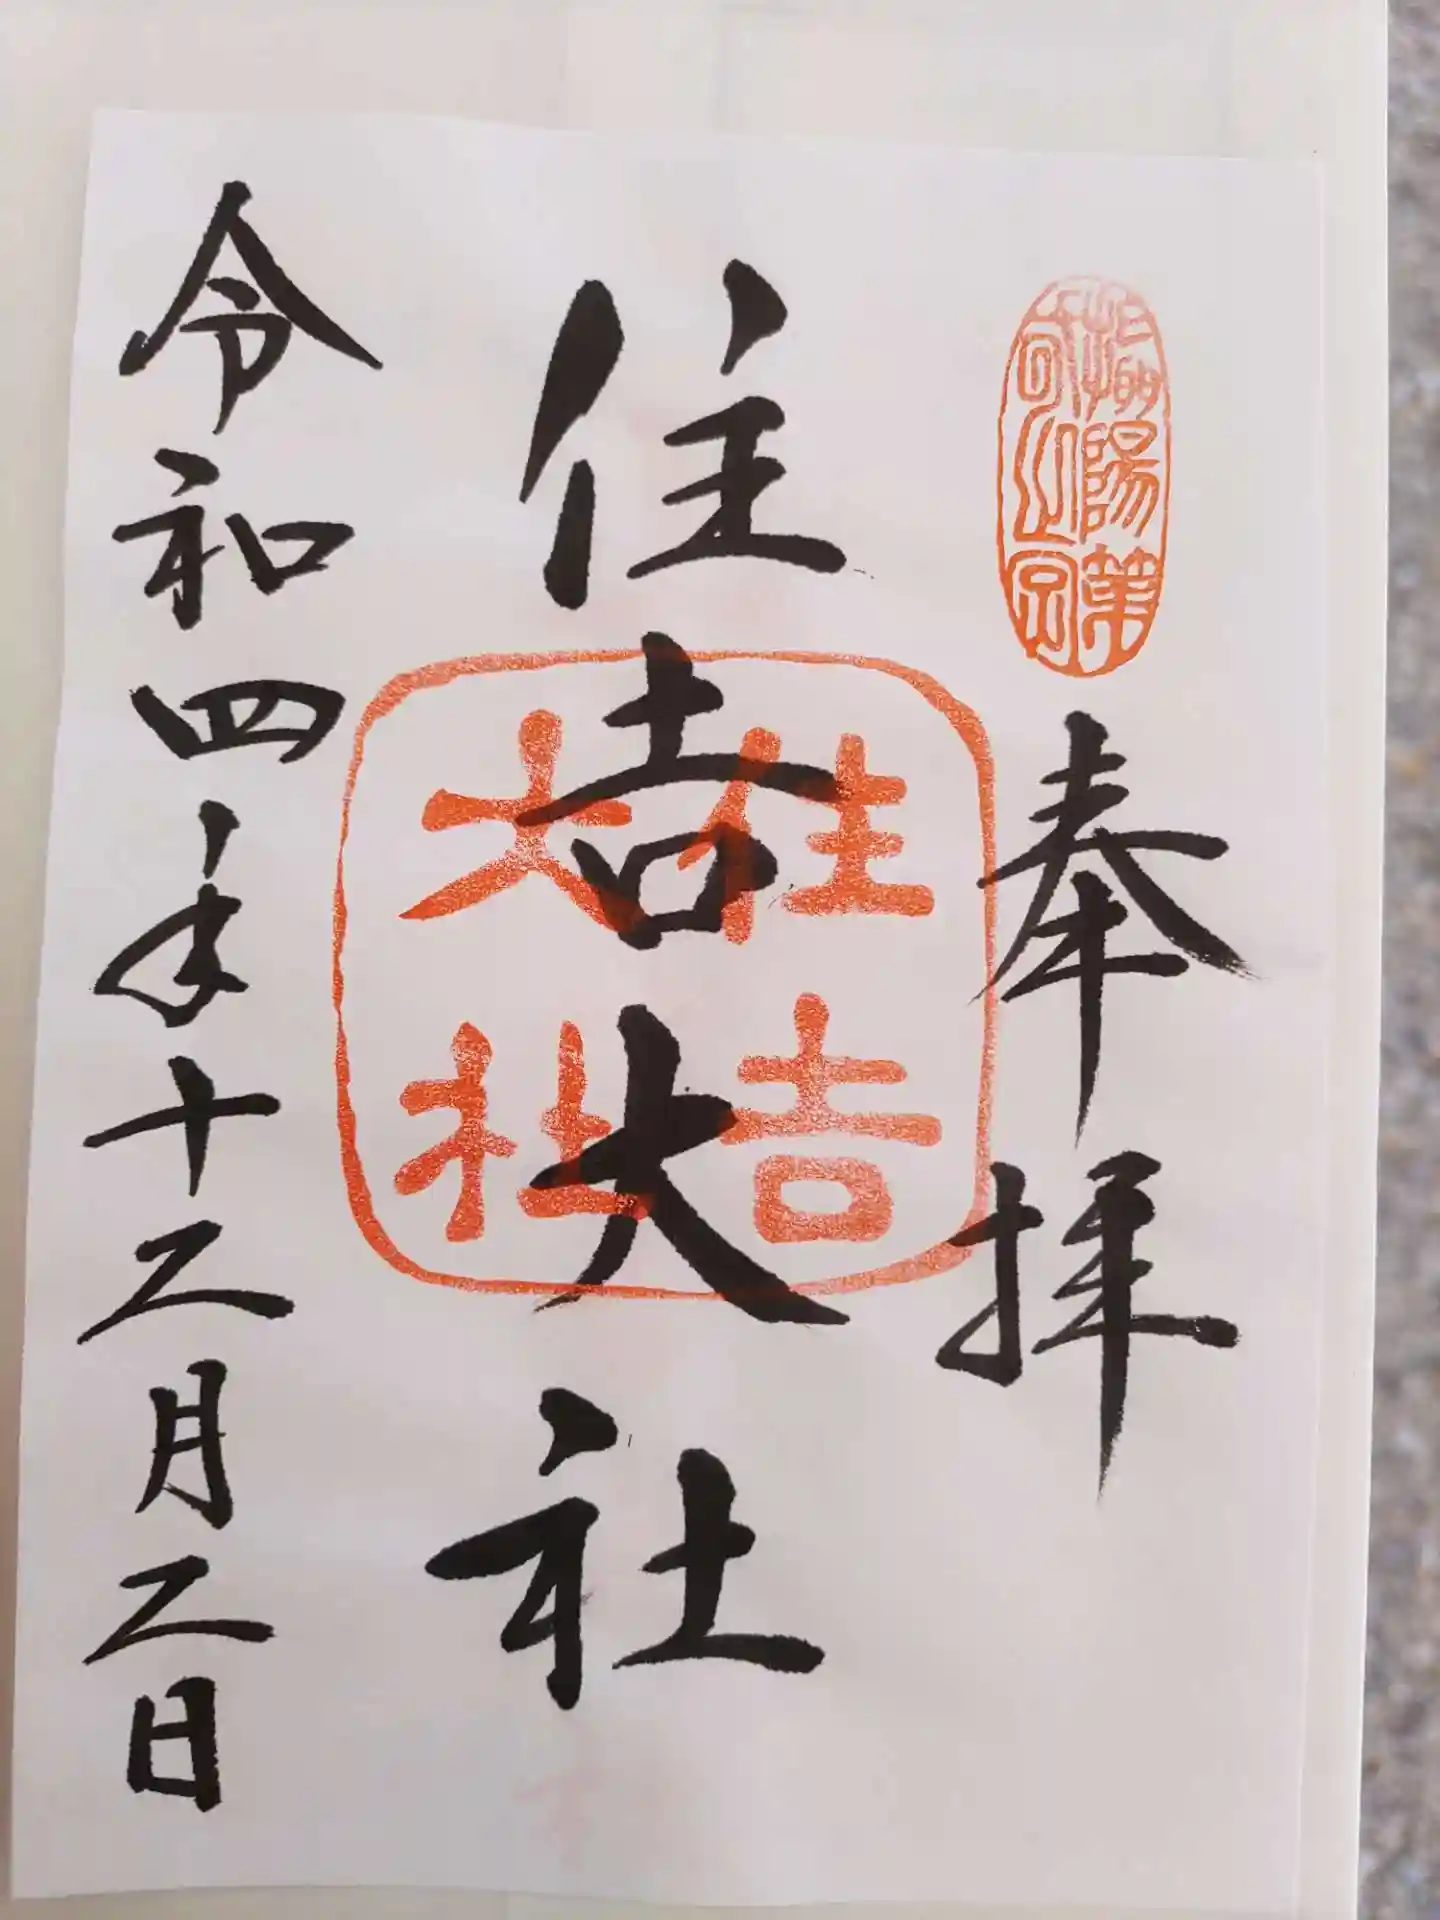 攝陽第
奉拝
住吉大社
住吉
大社
令和四年十二月二日